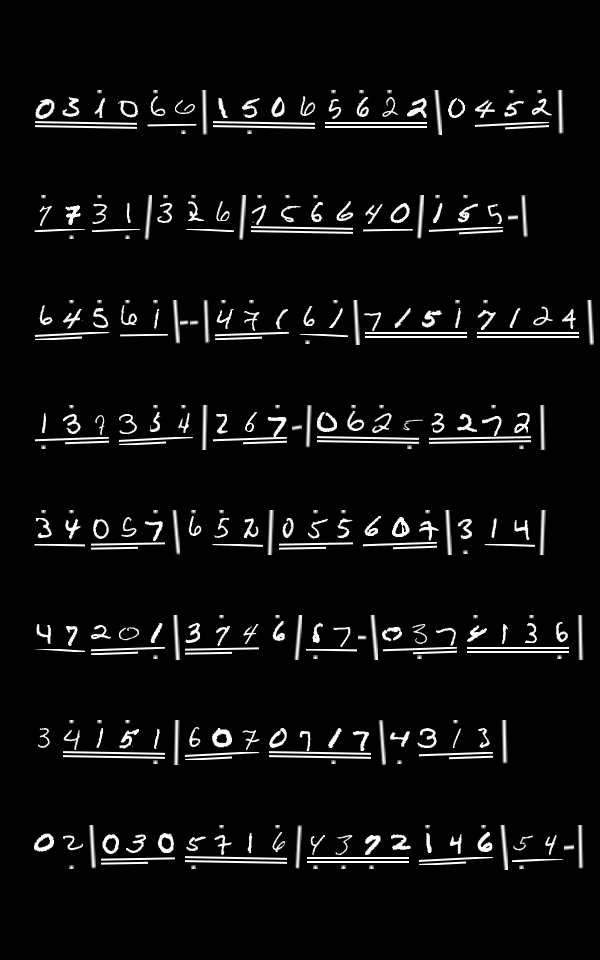 0310 66|1506 5622|0452
7731|326|7566 40|155-|
64561|--|47161|71517124|
137334|267-|06253272|
34057|652|055607|314|
47201|3746|57-|0374136|
34151|6070717|4313|
02|0305716|4372146|54-|